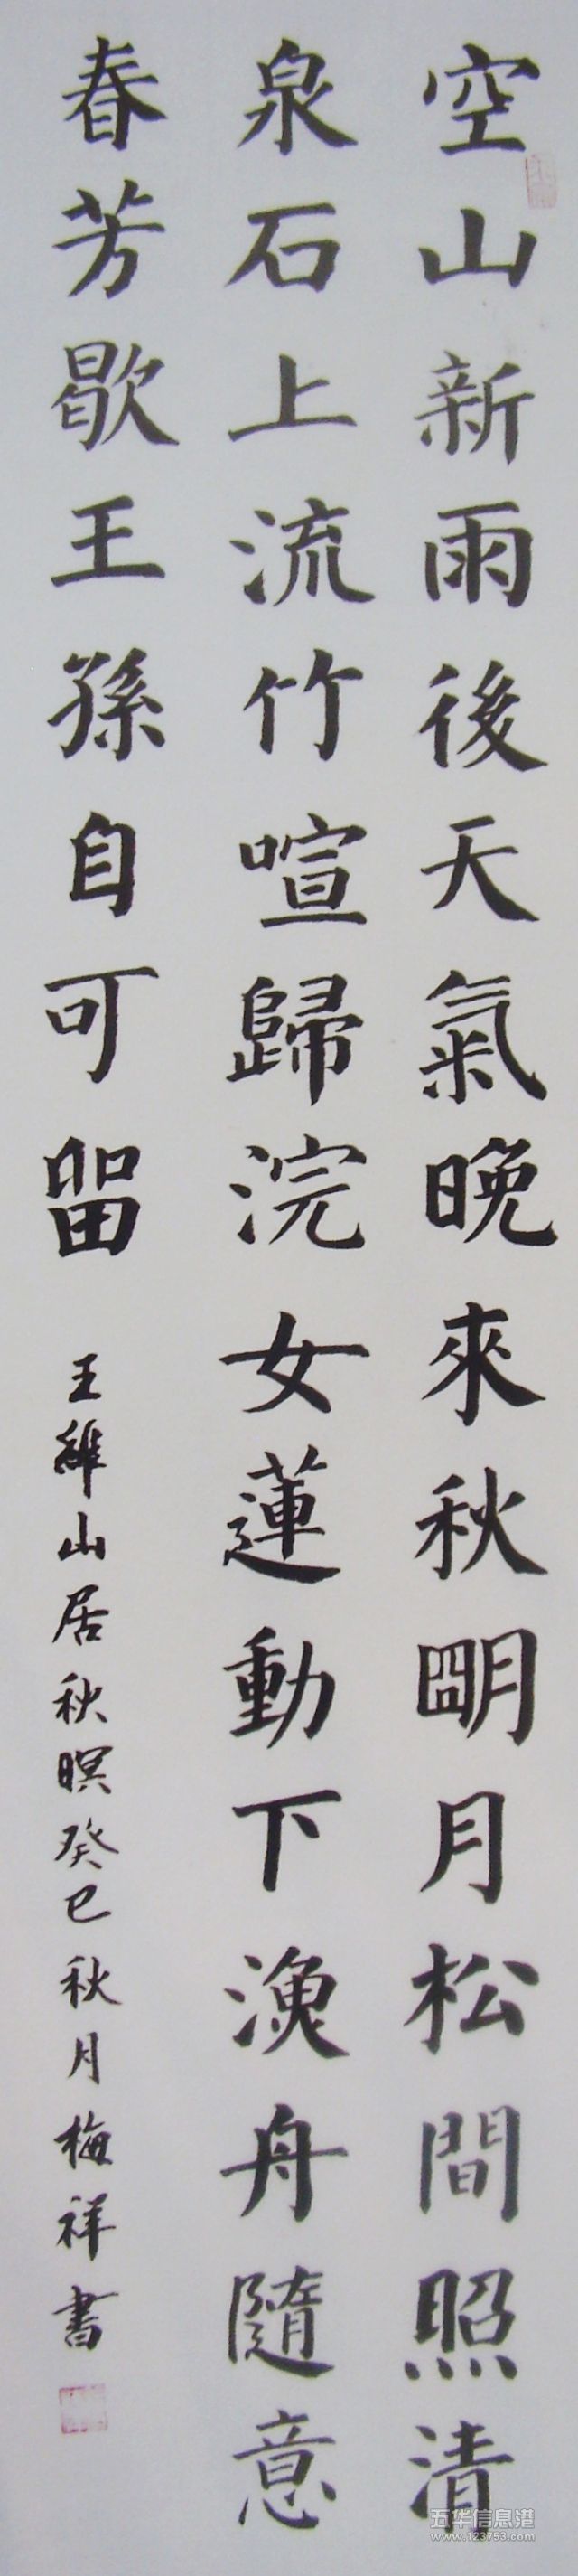 空山新雨後天氣晚來秋朙月松間照清
泉石上流竹喧歸浣女蓮動下漁舟隨意
春芳歇王孫自可留
王維山居秋暝癸巳秋月梅祥書
五华信息港
www.123753.com